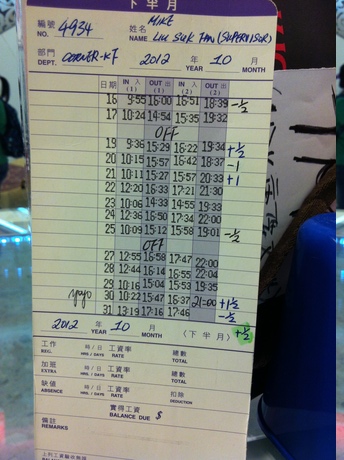 下半月
編號 4934 MIKE
NO. 姓名 NAME LIU SUK FAN (SUPERVISOR)
部門 DEPT. CORNER-KT 2012 年 YEAR 10 月 MONTH
日期 IN 入 (1) OUT 出 (1) IN 入 (2) OUT 出 (2)
16 9:55 16:00 16:51 18:39 -½
17 10:24 14:54 15:35 19:32
OFF
19 9:36 15:29 16:22 19:34 +½
20 10:15 15:57 16:42 18:37 -1
21 10:11 15:27 15:57 20:33 +1
22 12:20 16:33 17:21 21:30
23 10:06 14:33 14:55 19:33
24 12:36 16:50 17:34 22:00
25 10:09 15:12 15:58 19:01 -½
OFF
27 12:55 16:58 17:47 22:00
28 12:44 16:14 16:55 22:04
29 10:16 15:04 15:53 19:35
30 10:22 15:47 16:37 21:00 +1½
31 13:19 17:16 17:46 -½
2012 年 YEAR 10 月 MONTH 〈下半月〉 +½
工作 REG. 時/日 HRS./DAYS 工資率 RATE 總數 TOTAL
加班 EXTRA 時/日 HRS./DAYS 工資率 RATE 總數 TOTAL
缺值 ABSENCE 時/日 HRS./DAYS 工資率 RATE 扣除 DEDUCTION
實得工資 BALANCE DUE $
備註 REMARKS